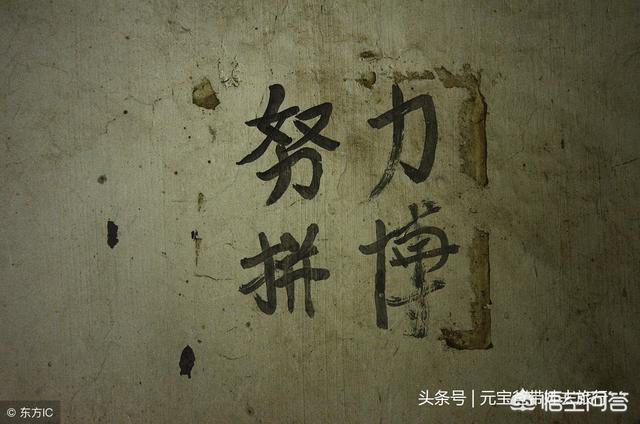 努力
拼博
头条号 | 元宝带去旅行
悟空问答
© 东方IC